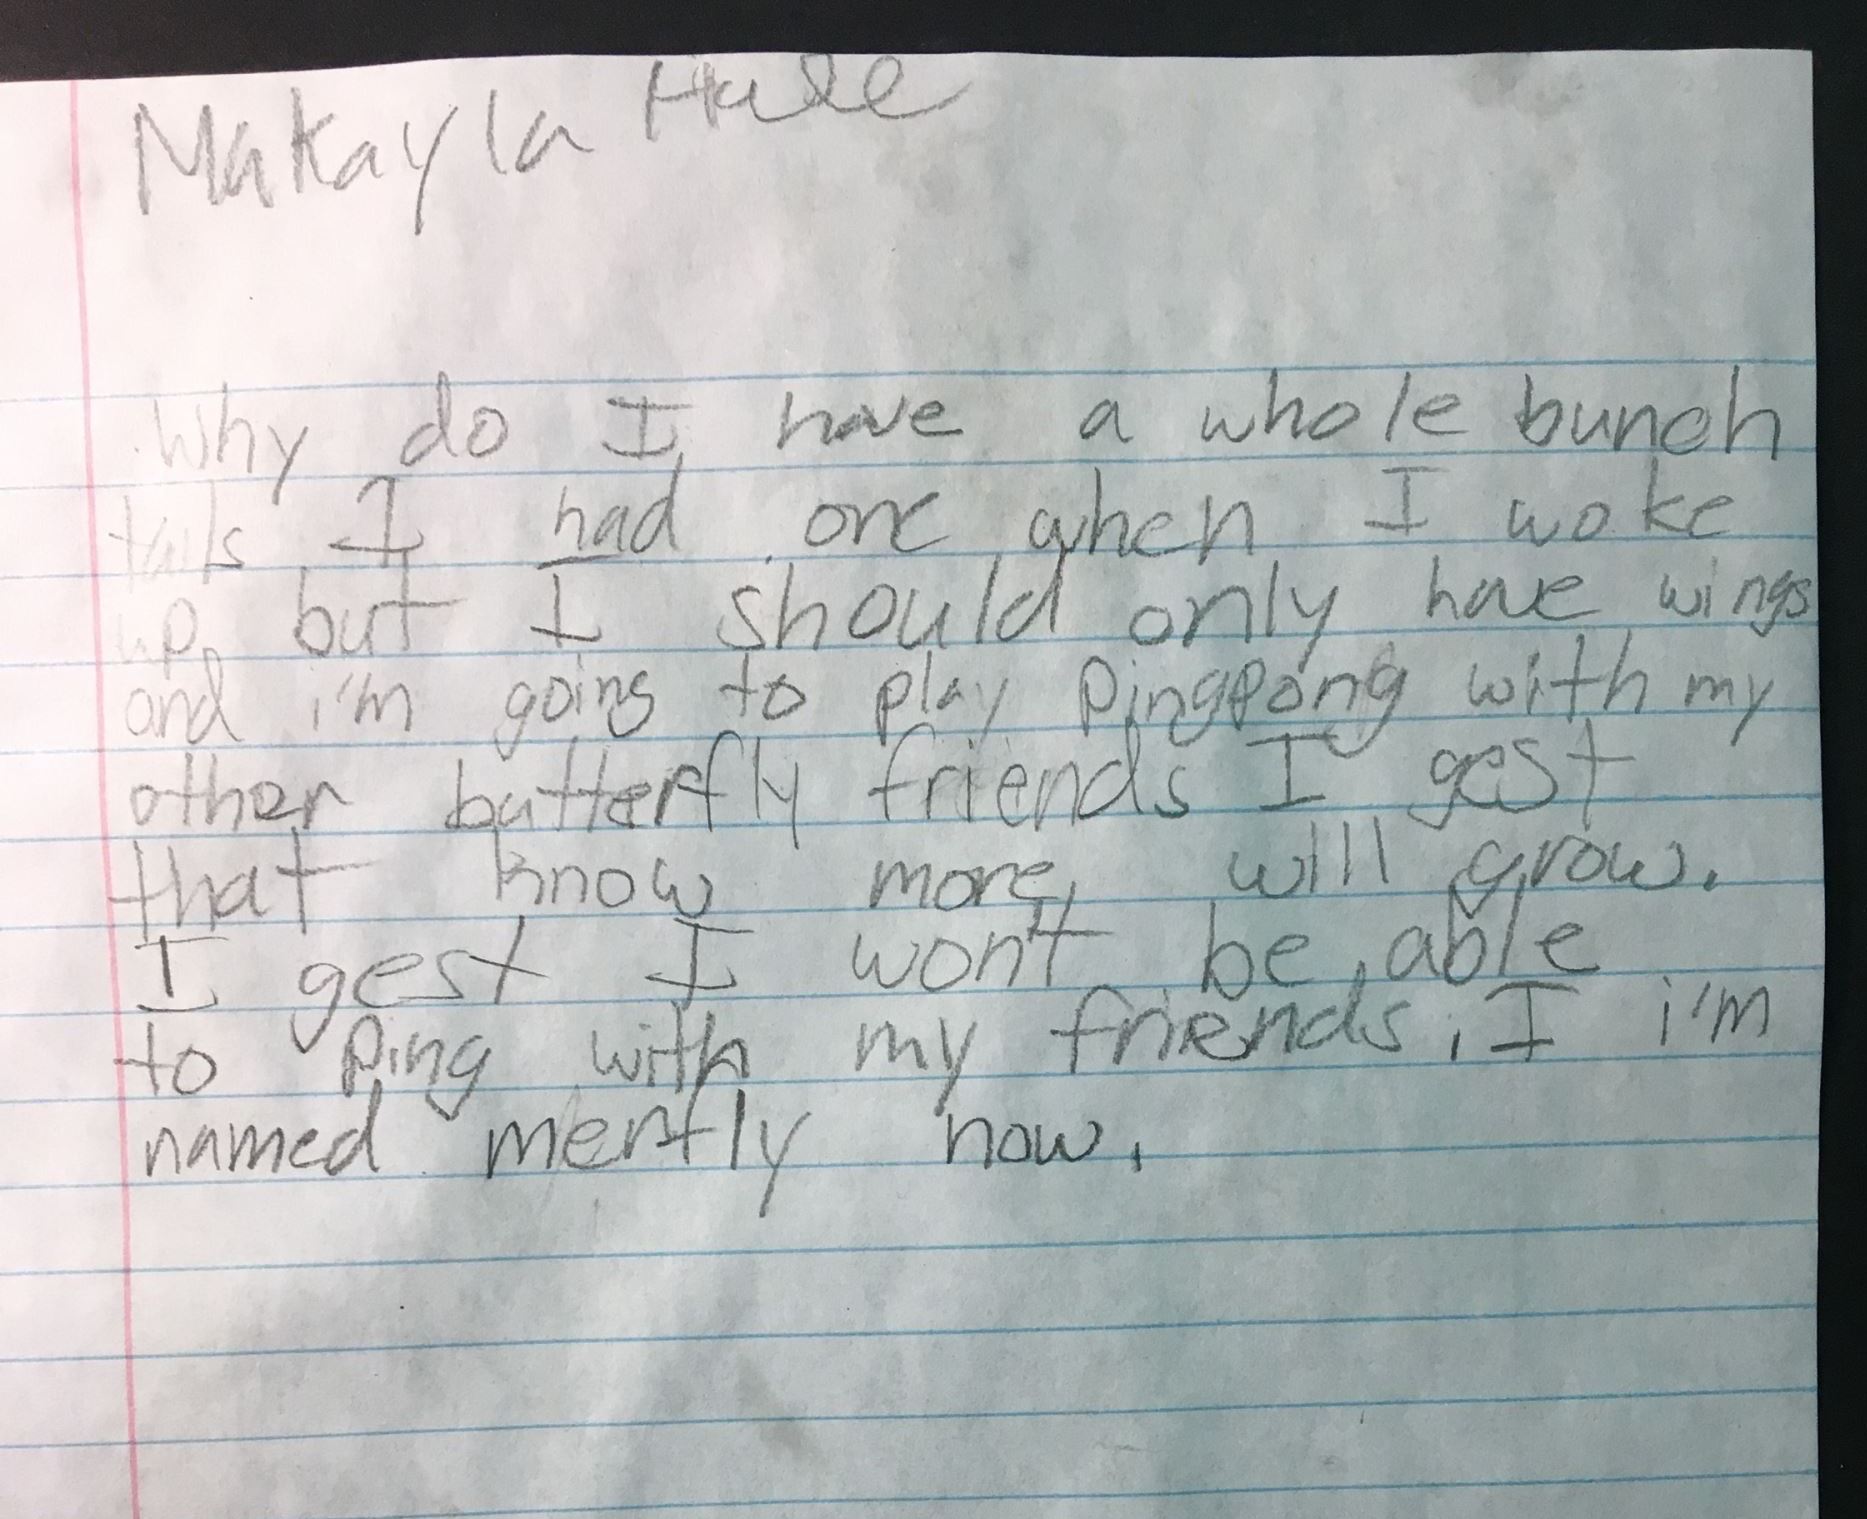 Makayla Hale
Why do I have a whole bunch
tails I had one when I woke
up, but I should only have wings
and i'm going to play Pingpong with my
other butterfly friends I gest
that know more will grow.
I gest I won't be able
to Ping with my friends. I i'm
named merfly now.